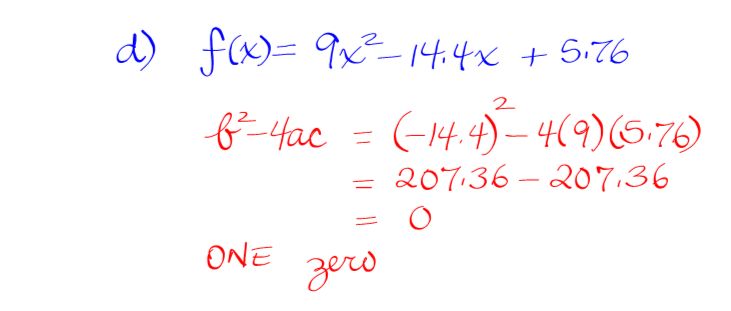 d) f(x) = 9x² - 14.4x + 5.76
b² - 4ac = (-14.4)² - 4(9)(5.76)
= 207.36 - 207.36
= 0
ONE zero